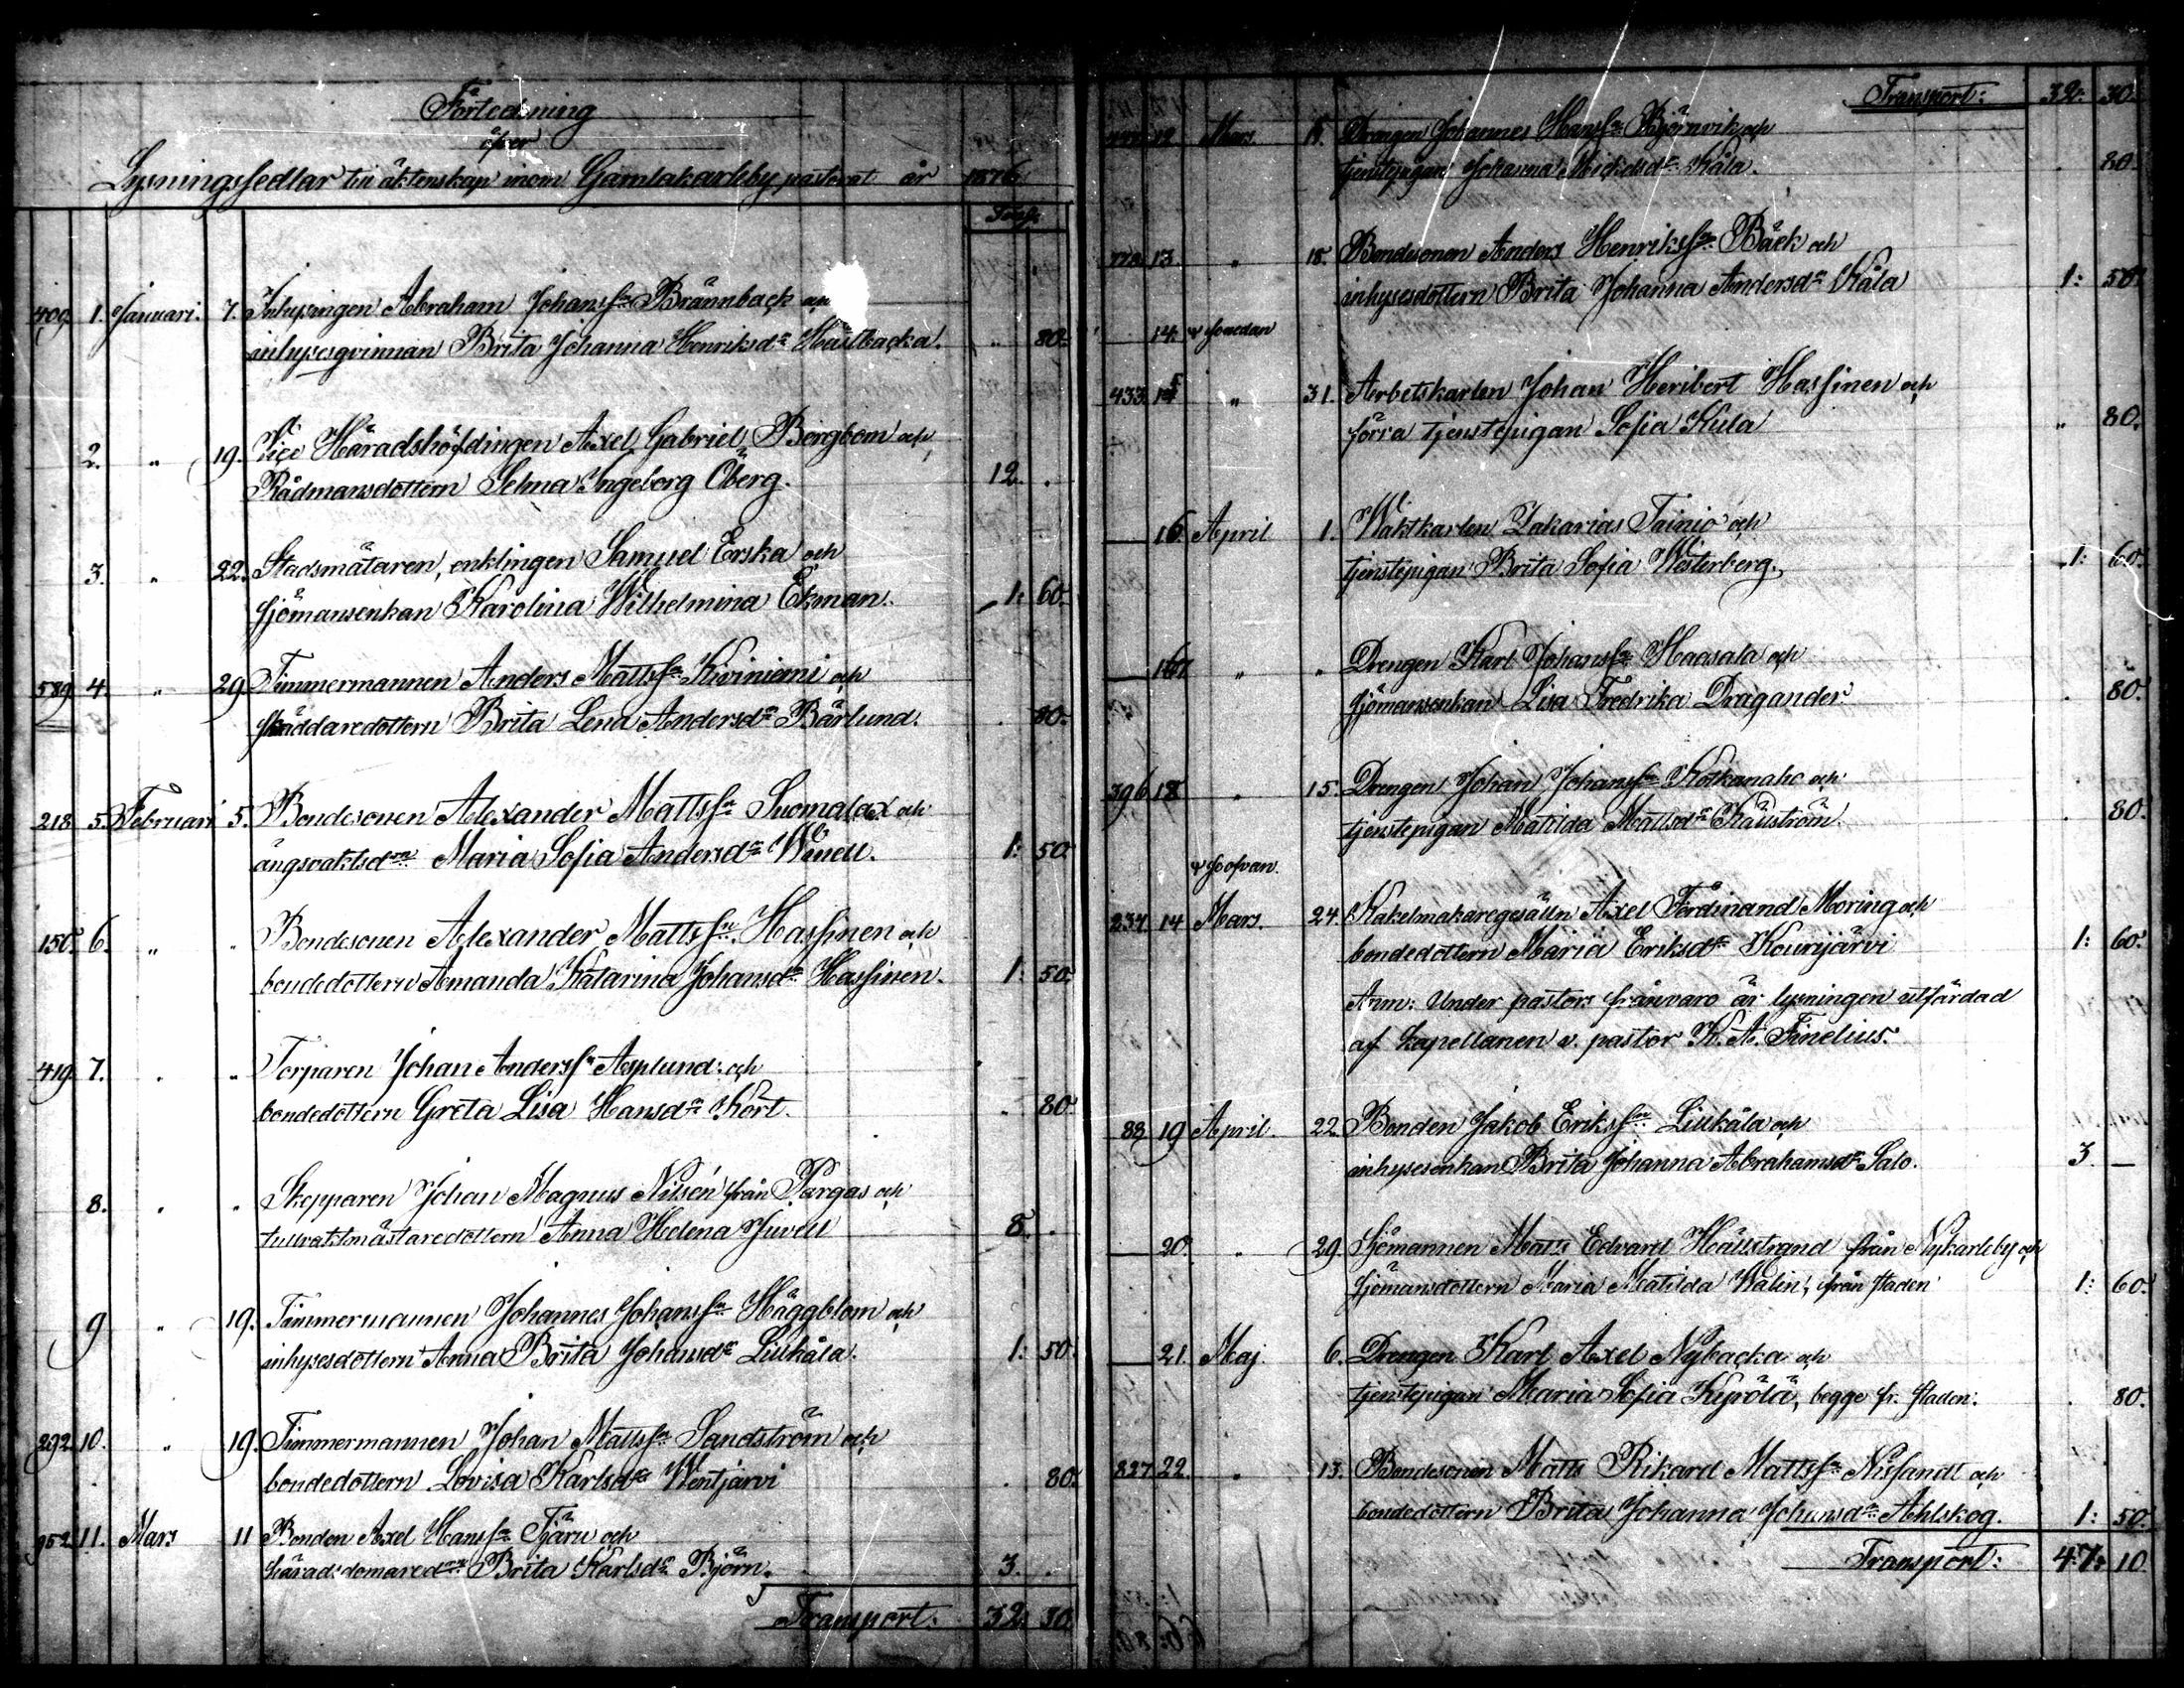 Förteckning
öfver
Lysningssedlar till äktenskap inom Gamlakarleby pastorat år 1876
409. 1. Januari. 7. Inhysingen Abraham Johansson Brännback
inhysesqvinnan Brita Johanna Henriksdr Hästbacka. " 80.
2. " 19. Vice Häradshöfdingen Axel Gabriel Borgbom och
Rådmansdottern Selma Ingeborg Öberg. 12. .
3. " 22. Stadsmätaren, enklingen Samuel Erska och
sjömansenkan Karolina Wilhelmina Ekman. 1: 60.
589 4. " 29 Timmermannen Anders Mattssn Kiviniemi och
skräddaredottern Brita Lena Andersdr Bärlund. . 80.
218 5. Februari 5. Bondesonen Alexander Mattssn Suomalax och
ängsvaktsdrn Maria Sofia Andersdr Winell. 1: 50.
150. 6. " " Bondesonen Alexander Mattssn Hassinen och
bondedottern Amanda Katarina Johansdr Hassinen. 1: 50.
419. 7. " " Torparen Johan Anderssn Asplund och
bondedottern Greta Lisa Hansdr Kort. . 80.
8. " " Skepparen Johan Magnus Nilsén från Pargas och
tullvaktmästaredottern Anna Helena 8. .
9 " 19. Timmermannen Johannes Johanssn Häggblom och
inhysesdottern Anna Brita Johansdr Liukala. 1: 50.
292. 10. " 19. Timmermannen Johan Mattssn Sandström och
bondedottern Lovisa Karlsdr Wentjärvi . 80.
952 11. Mars 11 Bonden Axel Hanssn Tjäru och
häradsdomaredrn Brita Karlsdr Björn. 3. .
Transport: 32. 30
Transport: 32. 30.
12 Mars. Drengen Johannes Hanssn Björnvik och
tjenstepigan Johanna Mickelsdr Kåla. . 80.
13. " 18. Bondesonen Anders Henrikssn Bäck och
inhysesdottern Brita Johanna Andersdr Kåla 1: 50.
14. se nedan
433. 15 " 31. Arbetskarlen Johan Heribert Hassinen och
förra tjenstepigan Sofia Kula " 80.
16 April 1. Waktkarlen Zakarias Tainio och
tjenstepigan Brita Sofia Westerberg. 1: 60.
17 " " Drengen Karl Johanssn Haasala och
sjömansenkan Lisa Fredrika Dragander. . 80.
396 18 " 15. Drengen Johan Johanssn Koskenaho och
tjenstepigan Matilda Mattsdr . 80.
se ofvan.
237 14 Mars. 24. Kakelmakaregesälln Axel Ferdinand Moring och
bondedottern Maria Eriksdr Kourijärvi 1: 60.
Anm: Under pastors frånvaro är lysningen utfärdad
af kapellanen v. pastor K. A. Finelius.
88 19 April. 22. Bonden Jakob Erikssn Liukala och
inhysesenkan Brita Johanna Abrahamsdr Salo. 3. —
20. " 29 Sjömannen Matts Edvard Hällstrand från Nykarleby och
sjömansdottern Maria Matilda Walin, från staden 1: 60.
21. Maj. 6. Drengen Karl Axel Nybacka och
tjenstepigan Maria Sofia Kyrölä, begge fr. staden. . 80.
837 22. " 13. Bondesonen Matts Rikard Mattssn Nissandt och
bondedottern Brita Johanna Johansdr Ahlskog. 1: 50.
Transport: 47: 10